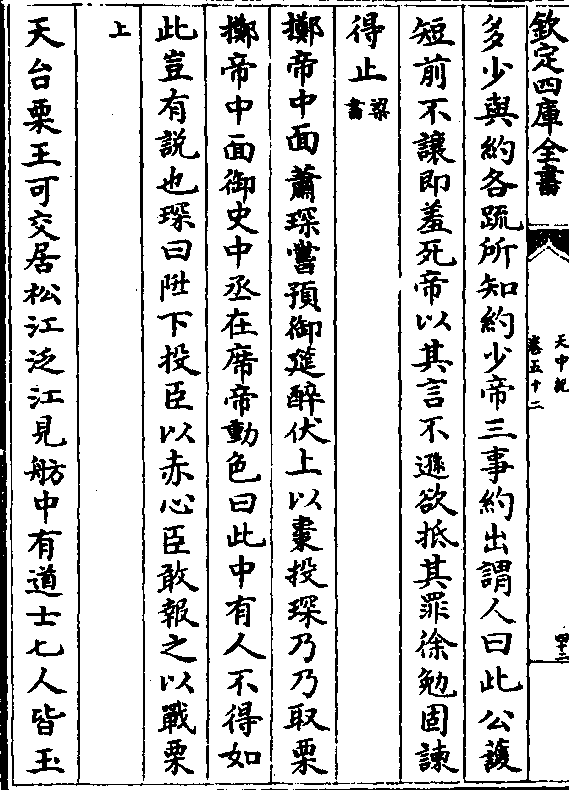 欽定四庫全書
天中記
卷五十二
四十二
多少與約各䟽所知約少帝三事約出謂人曰此公護
短前不讓即羞死帝以其言不遜欲抵其罪徐勉固諫
得止梁書
擲帝中面蕭琛嘗預御筵醉伏上以棗投琛乃乃取栗
擲帝中面御史中丞在席帝動色曰此中有人不得如
此豈有説也琛曰陛下投臣以赤心臣敢報之以戰栗
上
天台栗王可交居松江泛江見舫中有道士七人皆玉